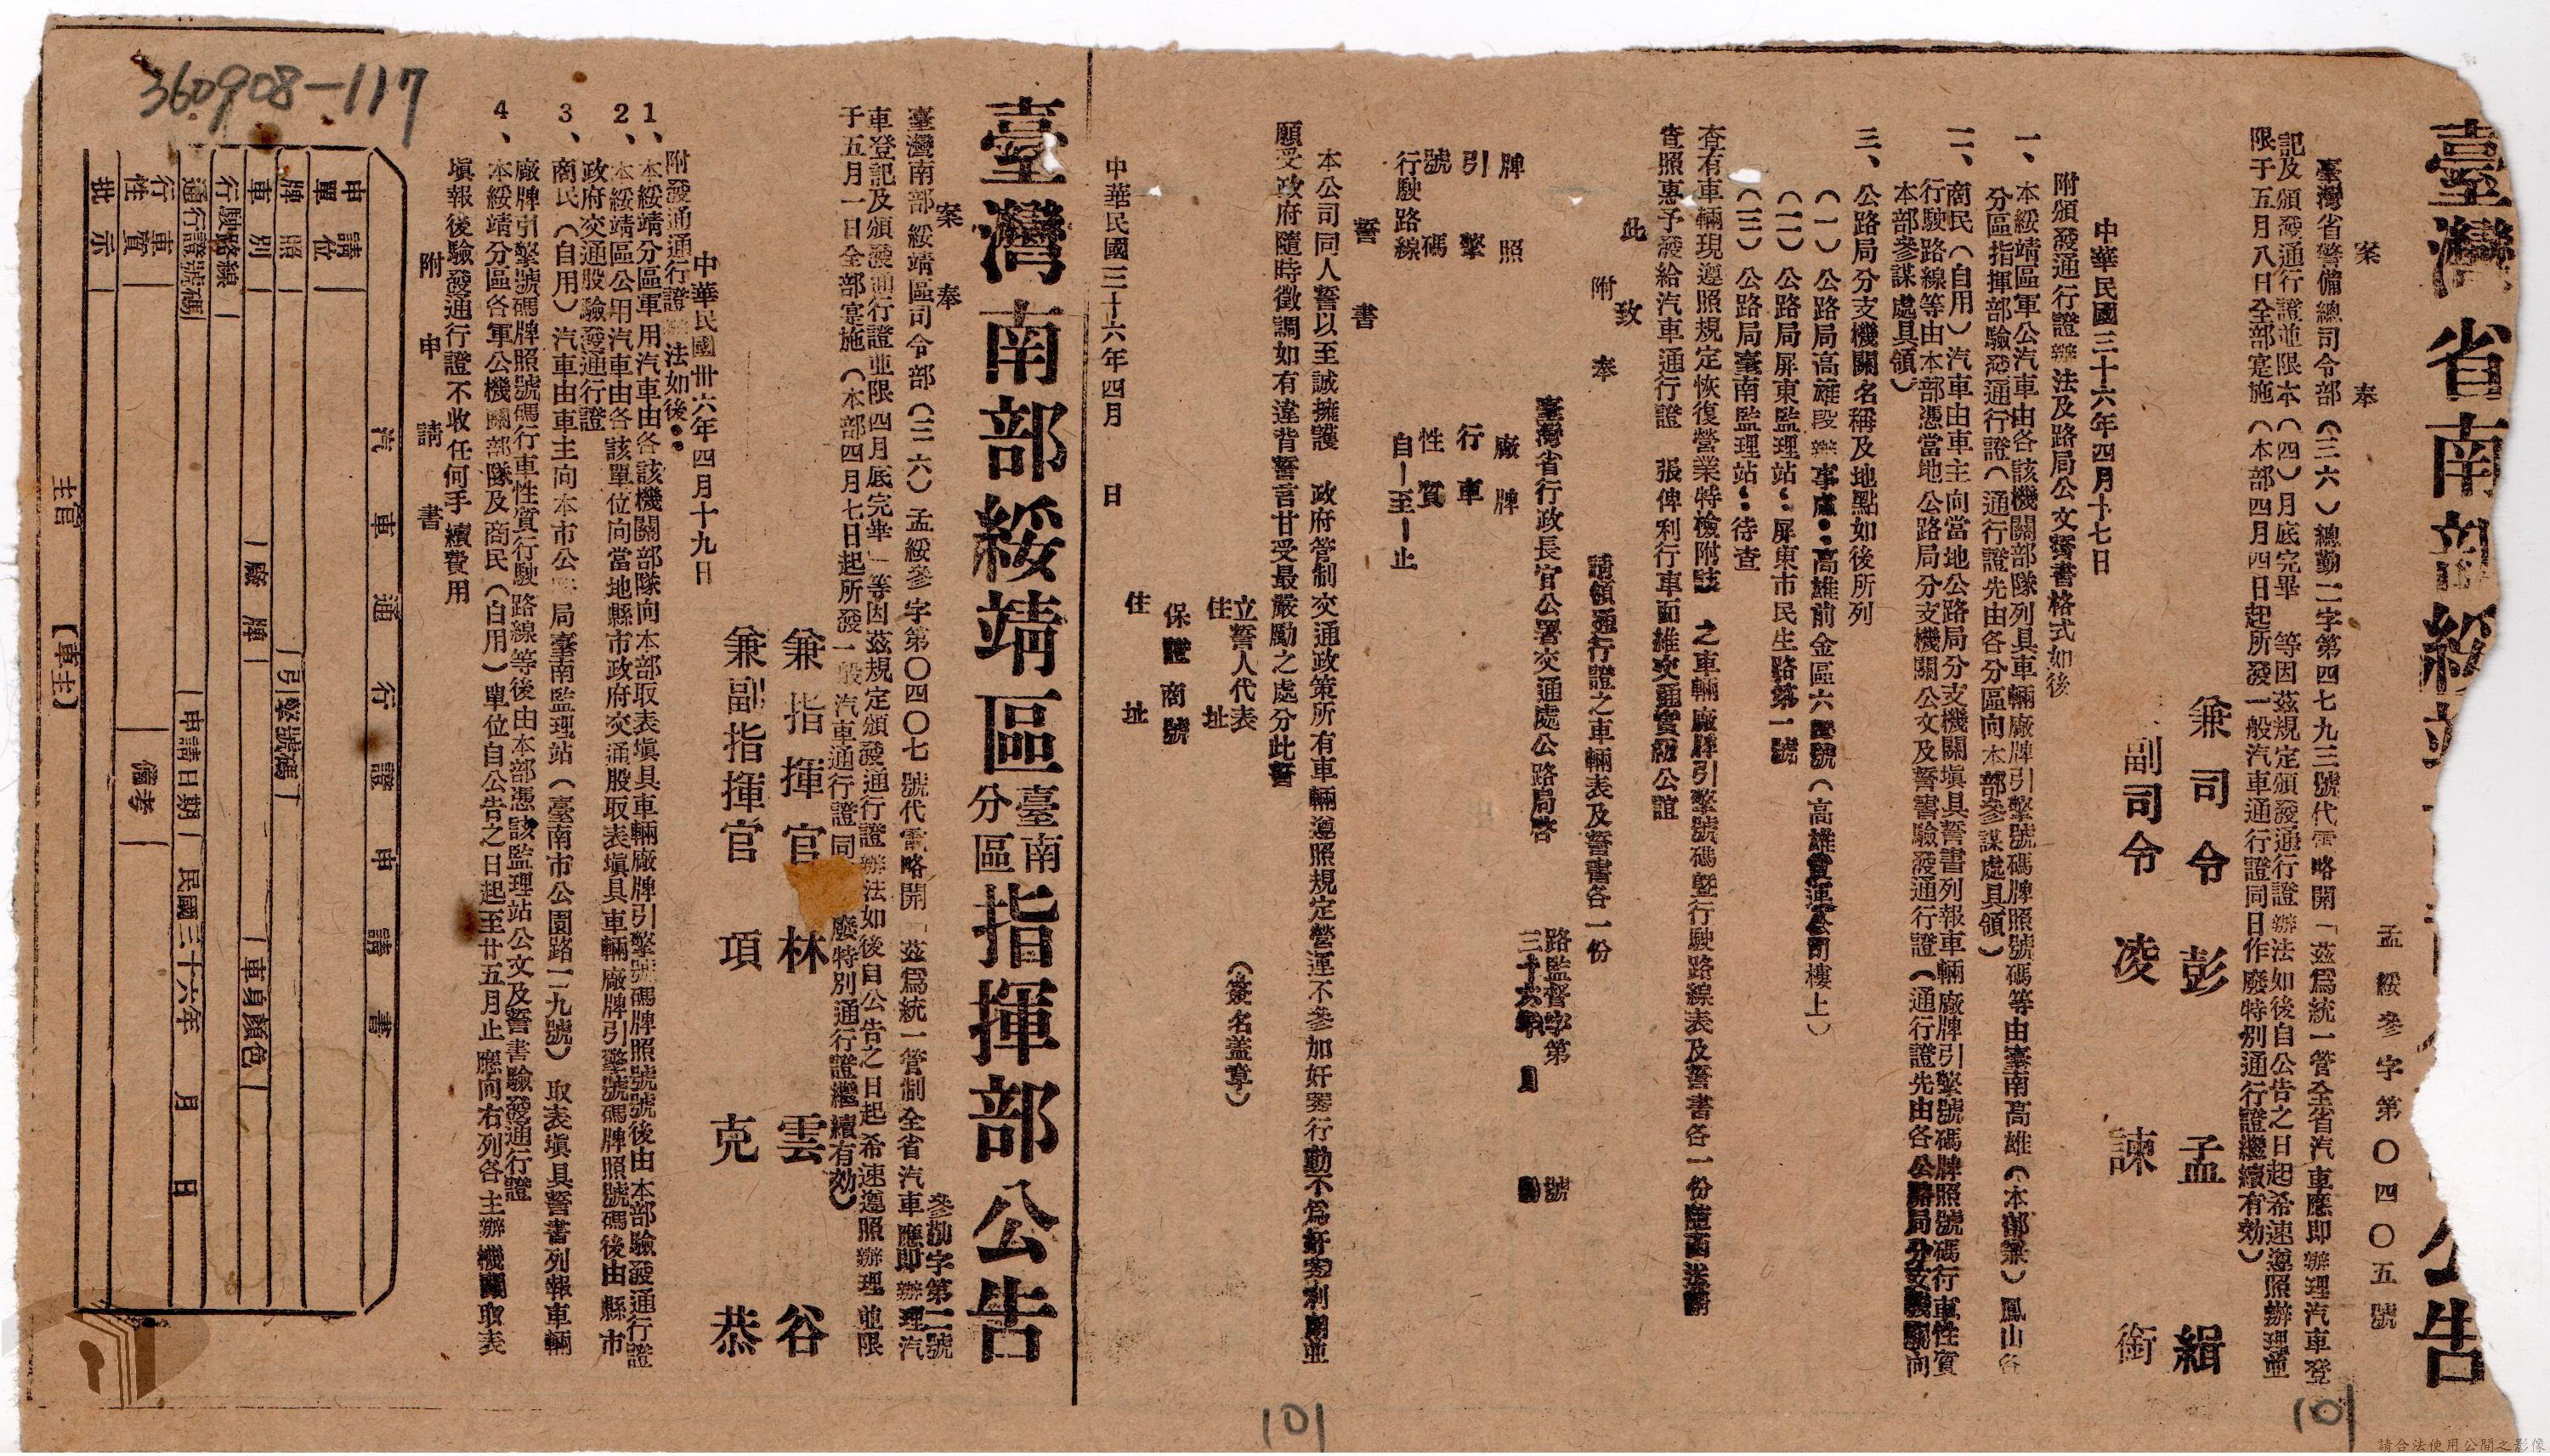 臺灣省南部綏
公告
孟綏參字第〇四〇五號
案奉
臺灣省警備總司令部（三六）總勤二字第四七九三號代電略開「茲爲統一管全省汽車應即辦理汽車登
記及頒發通行證並限本（四）月底完畢　等因茲規定頒發通行證辦法如後自公告之日起希速遵照辦理並
限于五月八日全部寔施（本部四月四日起所發一般汽車通行證同日作廢特別通行證繼續有効）
兼司令彭孟緝
副司令凌諫銜
中華民國三十六年四月十七日
附頒發通行證辦法及路局公文誓書格式如後
一、本綏靖區軍公汽車由各該機關部隊列具車輛廠牌引擎號碼牌照號碼等由臺南高雄（本部兼）鳳山各
分區指揮部驗發通行證（通行證先由各分區向本部參謀處具領）
二、商民（自用）汽車由車主向當地公路局分支機關填具誓書列報車輛廠牌引擎號碼牌照號碼行車性質
行駛路線等由本部憑當地公路局分支機關公文及誓書驗發通行證（通行證先由各公路局分支機關向
本部參謀處具領）
三、公路局分支機關名稱及地點如後所列
（一）公路局高雄段辦事處：高雄前金區六　號（高雄貨運公司樓上）
（二）公路局屏東監理站：屏東市民生路第一號
（三）公路局臺南監理站：待查
查有車輛現遵照規定恢復營業特檢附該　之車輛廠牌引擎號碼暨行駛路線表及誓書各一份隨函送請
查照惠予發給汽車通行證　張俾利行車而維交通實級公誼
此致
附奉
請領通行證之車輛表及誓書各一份
臺灣省行政長官公署交通處公路局啓
路監督字第　號
三十六年　月
牌照　廠牌
引擎　行車
號碼　性質
行駛路線　自—至—止
誓書
本公司同人誓以至誠擁護　政府管制交通政策所有車輛遵照規定營運不參加奸宄行動不爲奸宄利用並
願受政府隨時徵調如有違背誓言甘受最嚴勵之處分此誓
立誓人代表　（簽名蓋章）
住址
保證商號
住址
中華民國三十六年四月　日
臺灣南部綏靖區臺南分區指揮部公告
參刱字第二號
案奉
臺灣南部綏靖區司令部（三六）孟綏參字第〇四〇七號代電略開「茲爲統一管制全省汽車應即辦理汽
車登記及頒發通行證並限四月底完畢」等因茲規定頒發通行證辦法如後自公告之日起希速遵照辦理並限
于五月一日全部寔施（本部四月七日起所發一般汽車通行證同　廢特別通行證繼續有効）
兼指揮官林雲谷
兼副指揮官項克恭
中華民國卅六年四月十九日
附發通通行證辦法如後：
1、本綏靖分區軍用汽車由各該機關部隊向本部取表塡具車輛廠牌引擎號碼牌照號號後由本部驗發通行證
2、本綏靖區公用汽車由各該單位向當地縣市政府交通股取表塡具車輛廠牌引擎號碼牌照號碼後由縣市
政府交通股驗發通行證
3、商民（自用）汽車由車主向本市公路局臺南監理站（臺南市公園路一二九號）取表塡具誓書列報車輛
廠牌引擎號碼牌照號碼行車性質行駛路線等後由本部憑該監理站公文及誓書驗發通行證
4、本綏靖分區各軍公機關部隊及商民（自用）單位自公告之日起至廿五月止應向右列各主辦機關取表
塡報後驗發通行證不收任何手續費用
附申請書
汽車通行證申請書
申請單位
牌照　引擎號碼
車別　廠牌　車身顏色
行駛路線
通行證號碼　申請日期　民國三十六年　月　日
行車性質　備考
批示
主官　【車主】
360908-117
101
101
請合法使用公開之影像